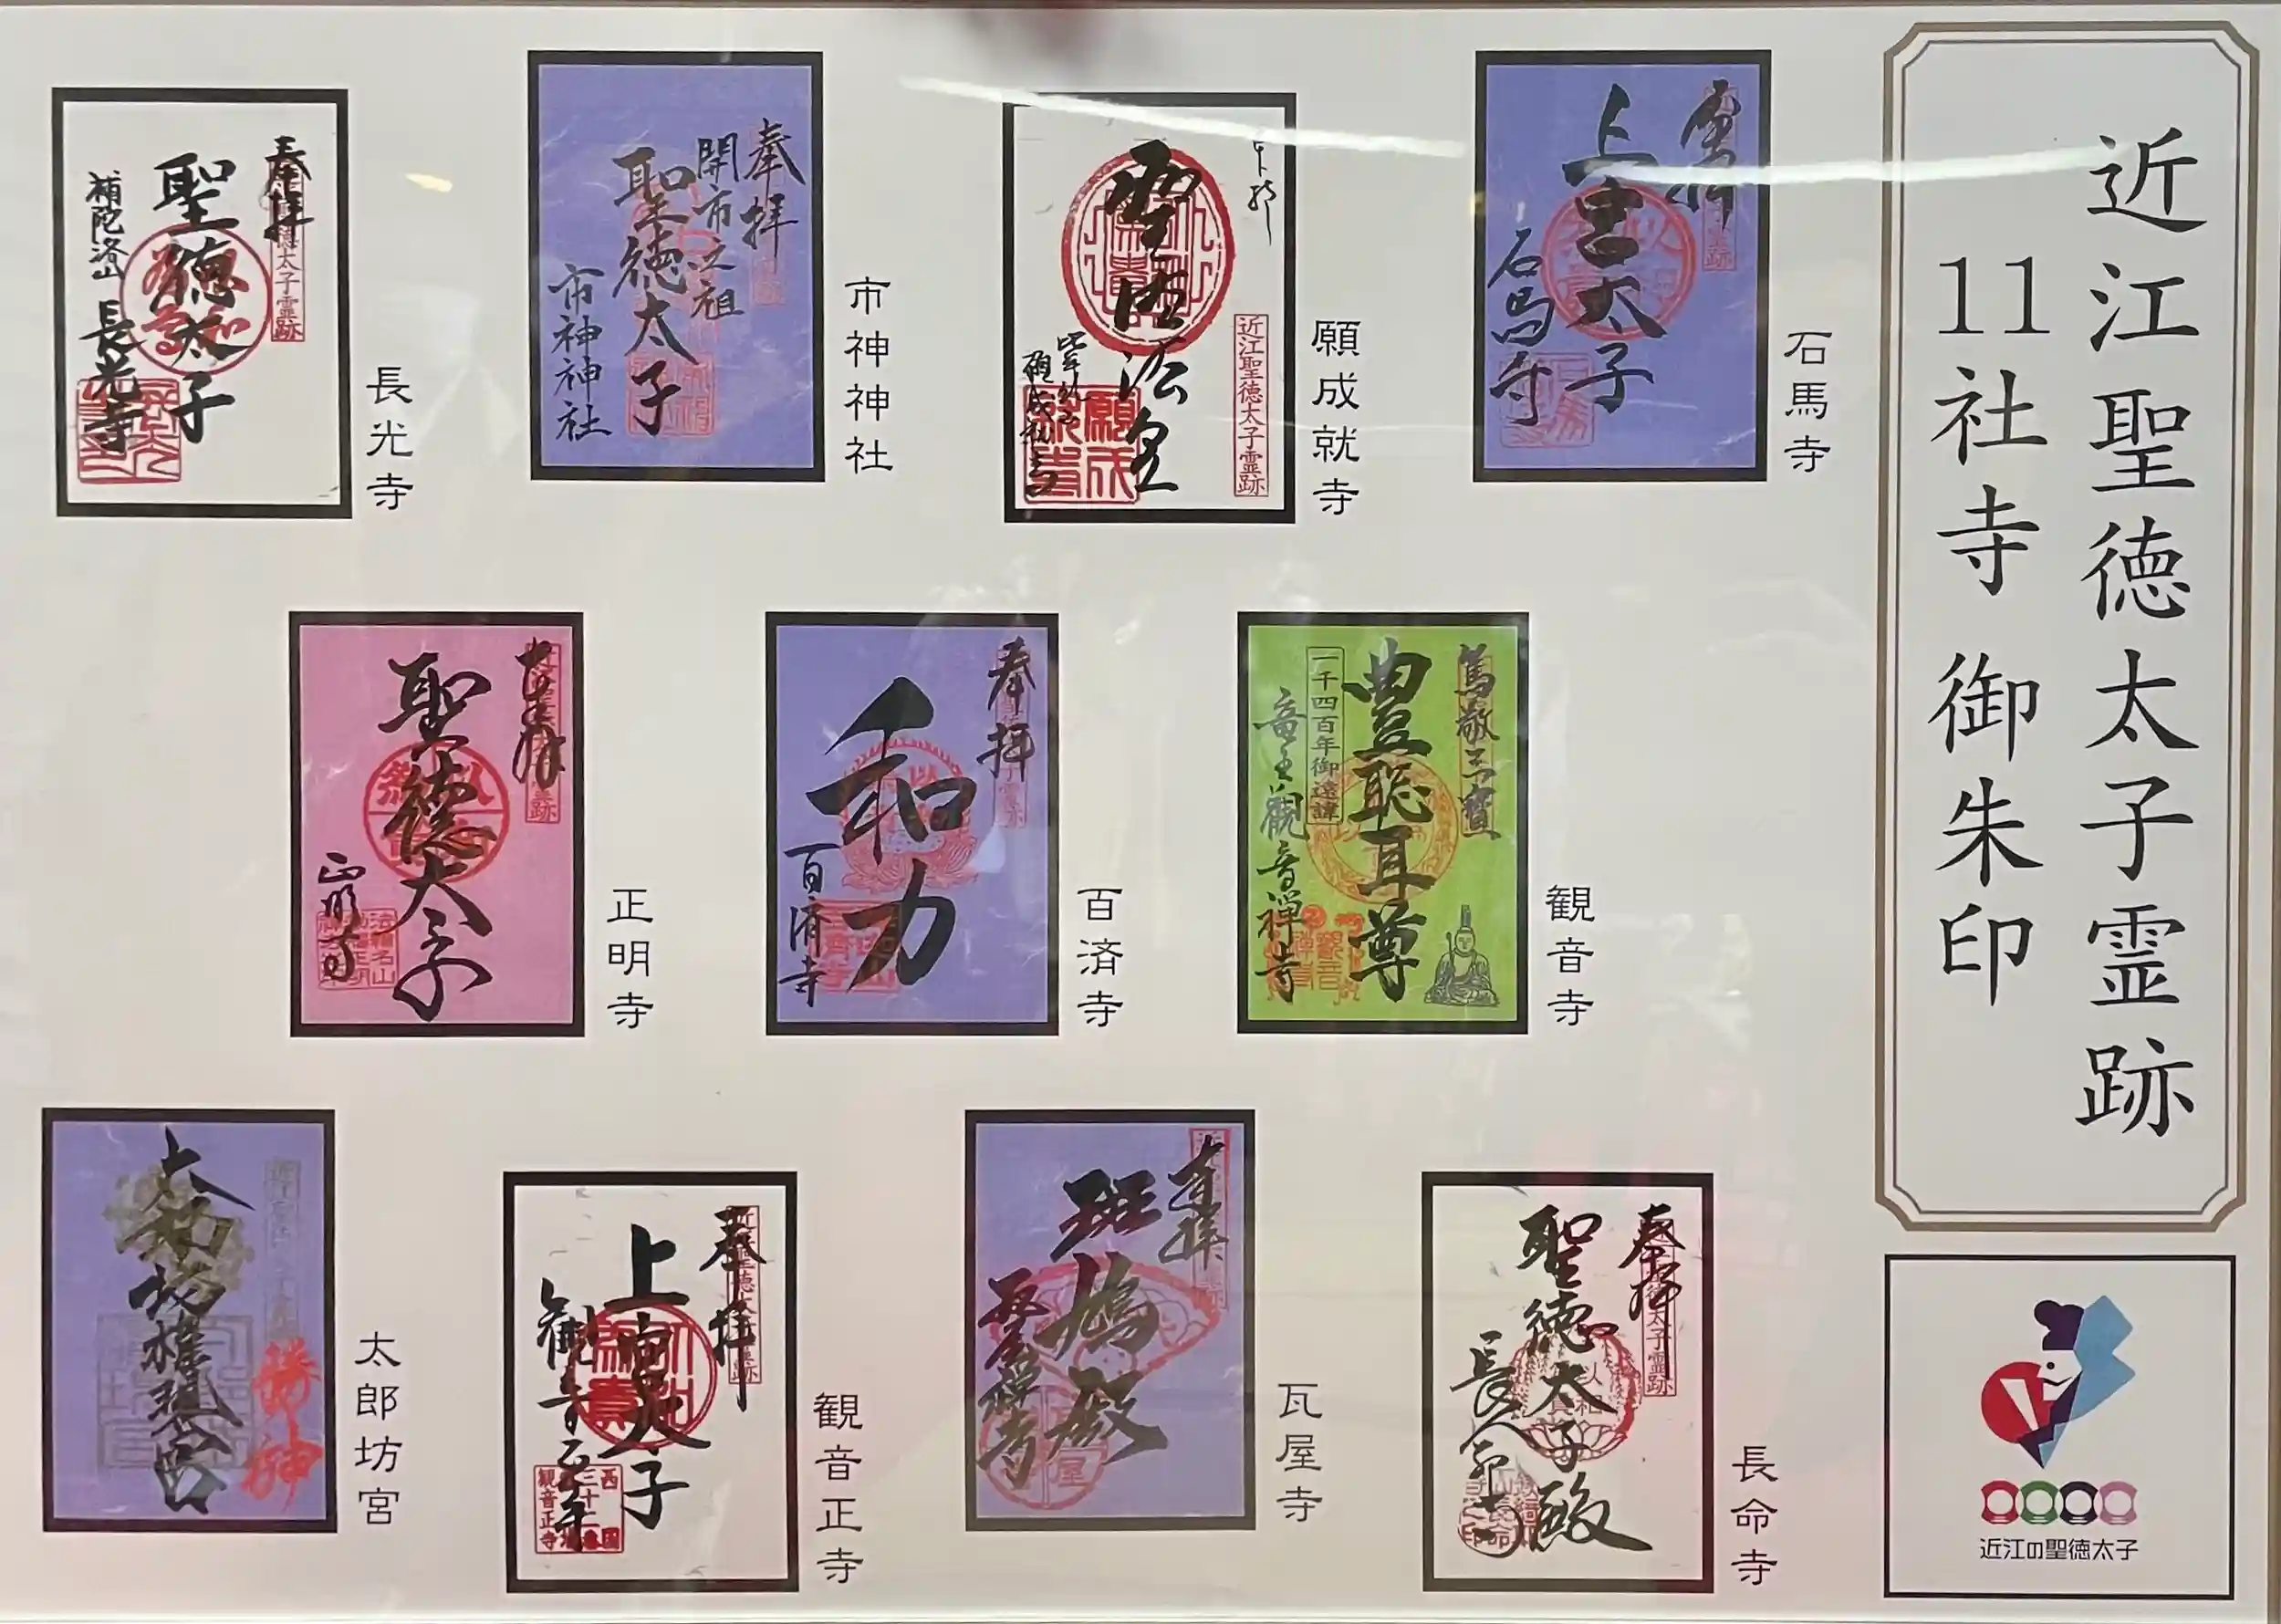 近江聖徳太子霊跡
11社寺 御朱印
石馬寺
上宮太子
石馬寺
願成就寺
近江聖徳太子霊跡
願成
市神神社
奉拝
開市之祖
聖徳太子
市神神社
長光寺
奉拝
聖徳太子
補陀洛山 長光寺
観音寺
篤敬三寳
豊聡耳尊
一千四百年御遠諱
竜王観音禅寺
百済寺
奉拝
和力
百済寺
正明寺
聖徳太子
正明寺
長命寺
奉拝
聖徳太子殿
長命寺
瓦屋寺
奉拝
斑鳩殿
観音正寺
奉拝
上宮太子
観音正寺
太郎坊宮
勝神
近江の聖徳太子